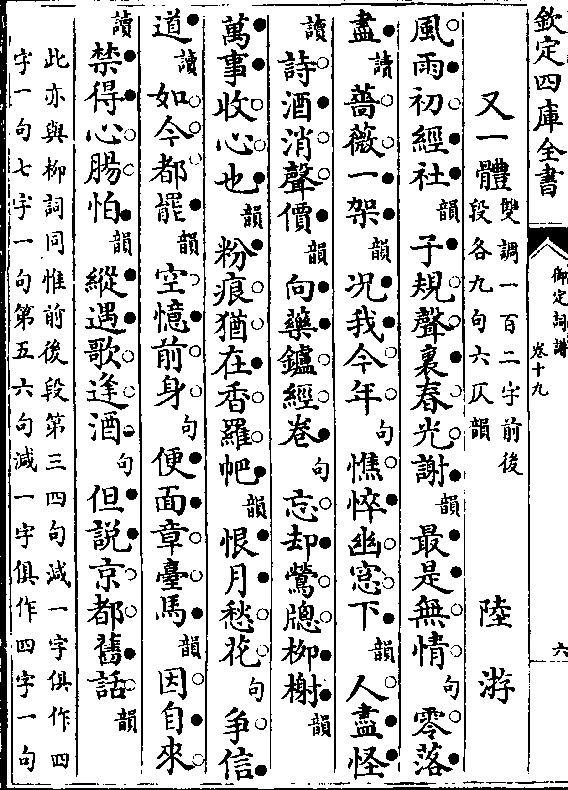 欽定四庫全書
御定詞譜
卷十九
六
又一體
雙調一百二字前後
段各九句六仄韻
陸游
風雨初經社韻子規聲裏春光謝韻最是無情句零落
盡讀薔薇一架韻況我今年句憔悴幽窻下韻人盡怪
讀詩酒消聲價韻向藥鑪經卷句忘却鶯牕柳榭韻
萬事收心也韻粉痕猶在香羅帊韻恨月愁花句爭信
道讀如今都罷韻空憶前身句便面章臺馬韻因自來
讀禁得心腸怕韻縱遇歌逢酒句但説京都舊話韻
此亦與柳詞同惟前後段第三四句減一字俱作四
字一句七字一句第五六句減一字俱作四字一句